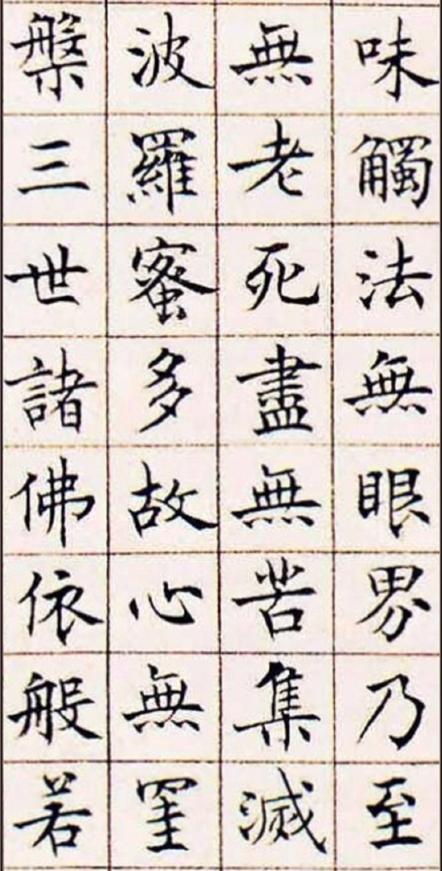 味觸法無眼界乃至
無老死盡無苦集滅
波羅蜜多故心無罣
槃三世諸佛依般若